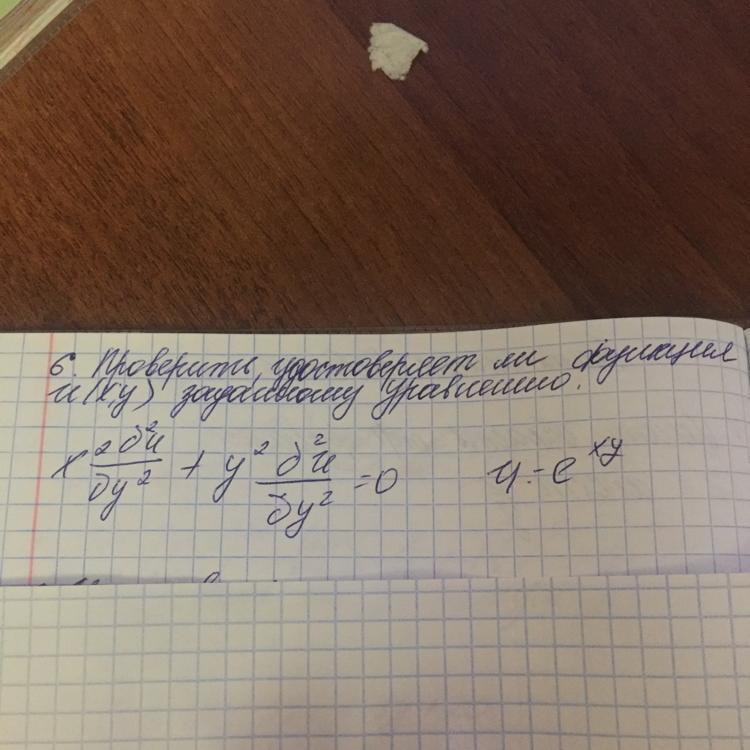 6. Проверить, удостоверяет ли функция
u(x,y) заданному уравнению.
x² ∂²u/∂y² + y² ∂²u/∂y² = 0 u = e^xy